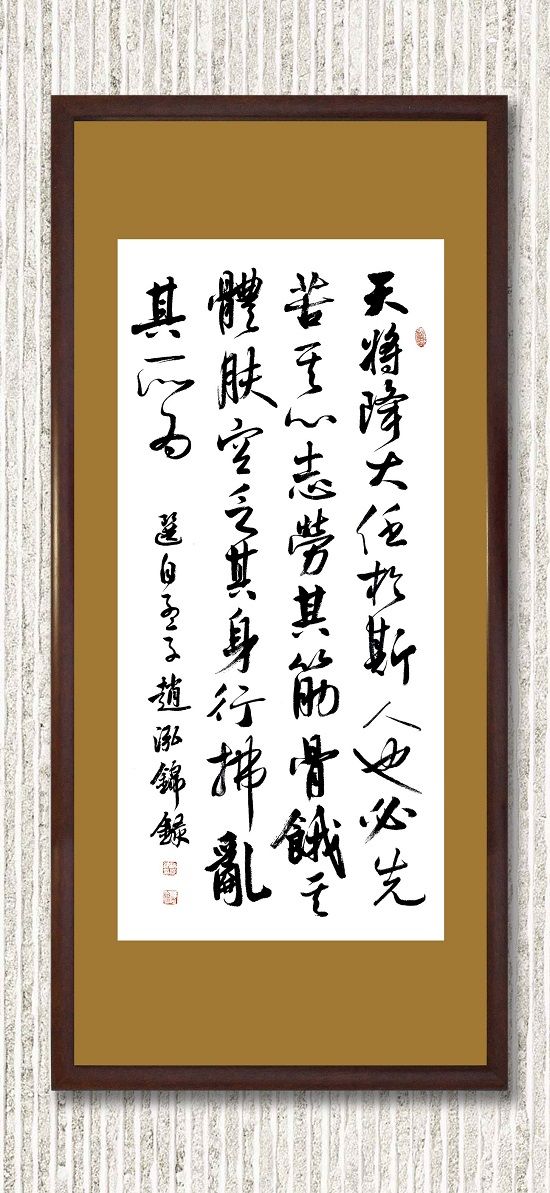 天将降大任於斯人也必先
苦其心志勞其筋骨餓其
體膚空乏其身行拂亂
其所為
選自孟子趙泓錦錄